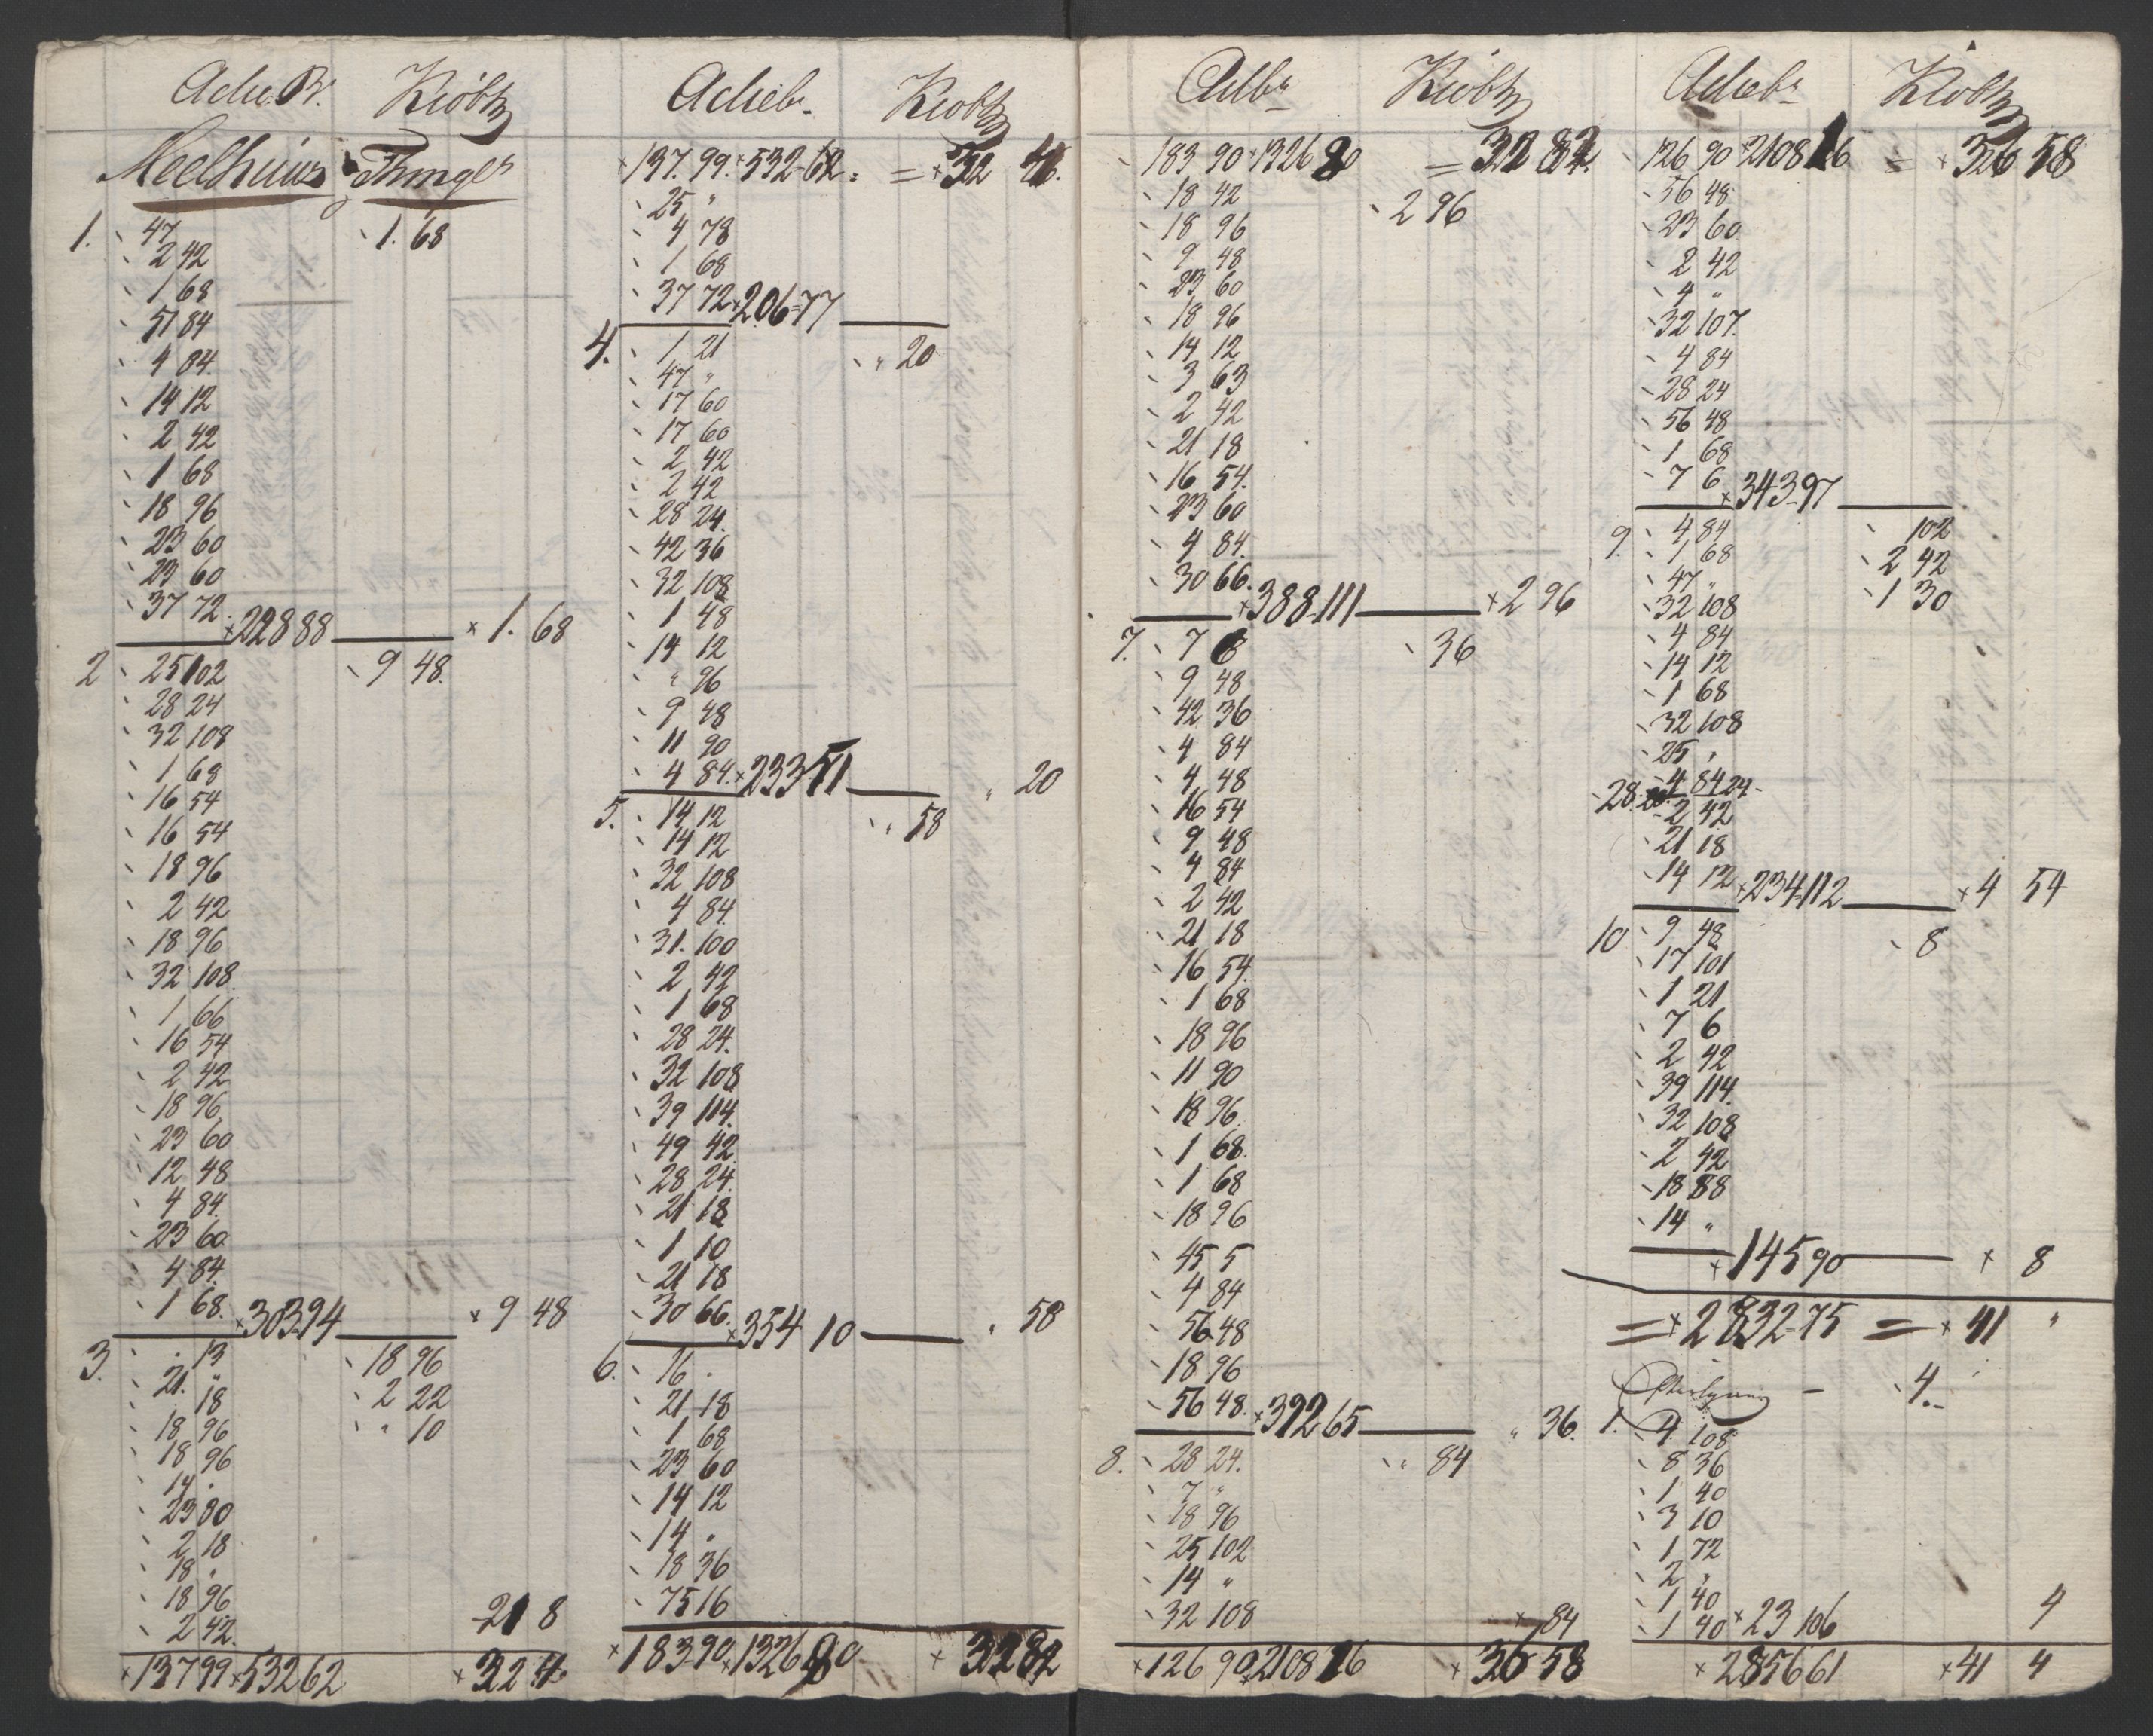 Kiöbst
Kiobst
Kiobst
Kiobst
Meelhuus Thinget
1. 47 1. 68
2 42
1 68
51 84
4 84.
14 12
2 42
1 68
18 96
23 60
23 60
37 72. × 228 88 × 1. 68
2 25 102 9 48.
28 24
32 108
1 68
16 54
16 54
18 96
2 42
18 96
32 108.
1 66
16 54
2 42
18 96
23 60
12 48
4 84.
23 60
4 84.
1 68. × 303 94 × 9 48
3. . 13 18 96
21. " 2 22
18 " 10
18 96
18 96
14 .
23 80
2 18
18 .
18 96
2 42. 21 8
× 137 99 × 532 62 × 32 4
× 137. 99. × 532 62. = × 32 4
25 "
4 78
1 68
37 72 × 206 = 77
4. 1 21 " 20
47 "
17 60
17 60
2 42
2 42
28 24.
42 36
32 108
1 48
14 12
" 96
9 48
11 90
4 84. × 233 51 " 20
5. 14 12 " 58
14 12
32 108
4 84.
31. 100
2 42
1 68
28 24.
32 108
39 114.
49 42
28 24.
21 18
1 10
21 18
30 66. × 354 10 " 58
6. 16 .
21 18
1 68
23 60
14 12
14 .
18 36
75 16
× 183 90 × 1326 80 × 32 82
183 90 × 1326 80 = 32 82.
18 42 2 96
18 96
9 48
23 60
18 96
14 12
3 63
2 42
21 18
16 54.
23 60
4 84.
30 66. × 388 111 × 2 96
7. 7 6 36
9 48
42 36
4 84
4 48
16 54
9 48
4 84
2 42
21 18
16 54.
1 68
18 96
11 90
18 96
1 68.
1 68
18 96
45 5
4 84
56 48
18 96
56 48. × 392 65 " 36.
8. 28 24. " 84
7 "
18 96
25 102
14 "
32 108 × 84
× 126 90 × 2108 16 × 36 58
126 90 × 2108 16 = × 36 58
56 48
23 60
2 42
4 "
32 107.
4 84
28 24
56 48
1 68
7 6 × 343 97
9. 4 84 102
1 68 2 42
47 " 1 30
32 108
4 84
14 12
1 68
32 108
25 "
4 84
28. 24
2 42
21 18
14 12 × 234 112 × 4 54
10 9 48 8
17 101
1 21
7 6
2 42
39 114.
32 108
2 42
18 88
14 "
× 145 90 × 8
= × 2832 75 = × 41 "
4. -
1. 4 108
8 36
1 40
3 10
1 72
2 "
1 40
1 40 × 23 106 4
× 2856 61 × 41 4